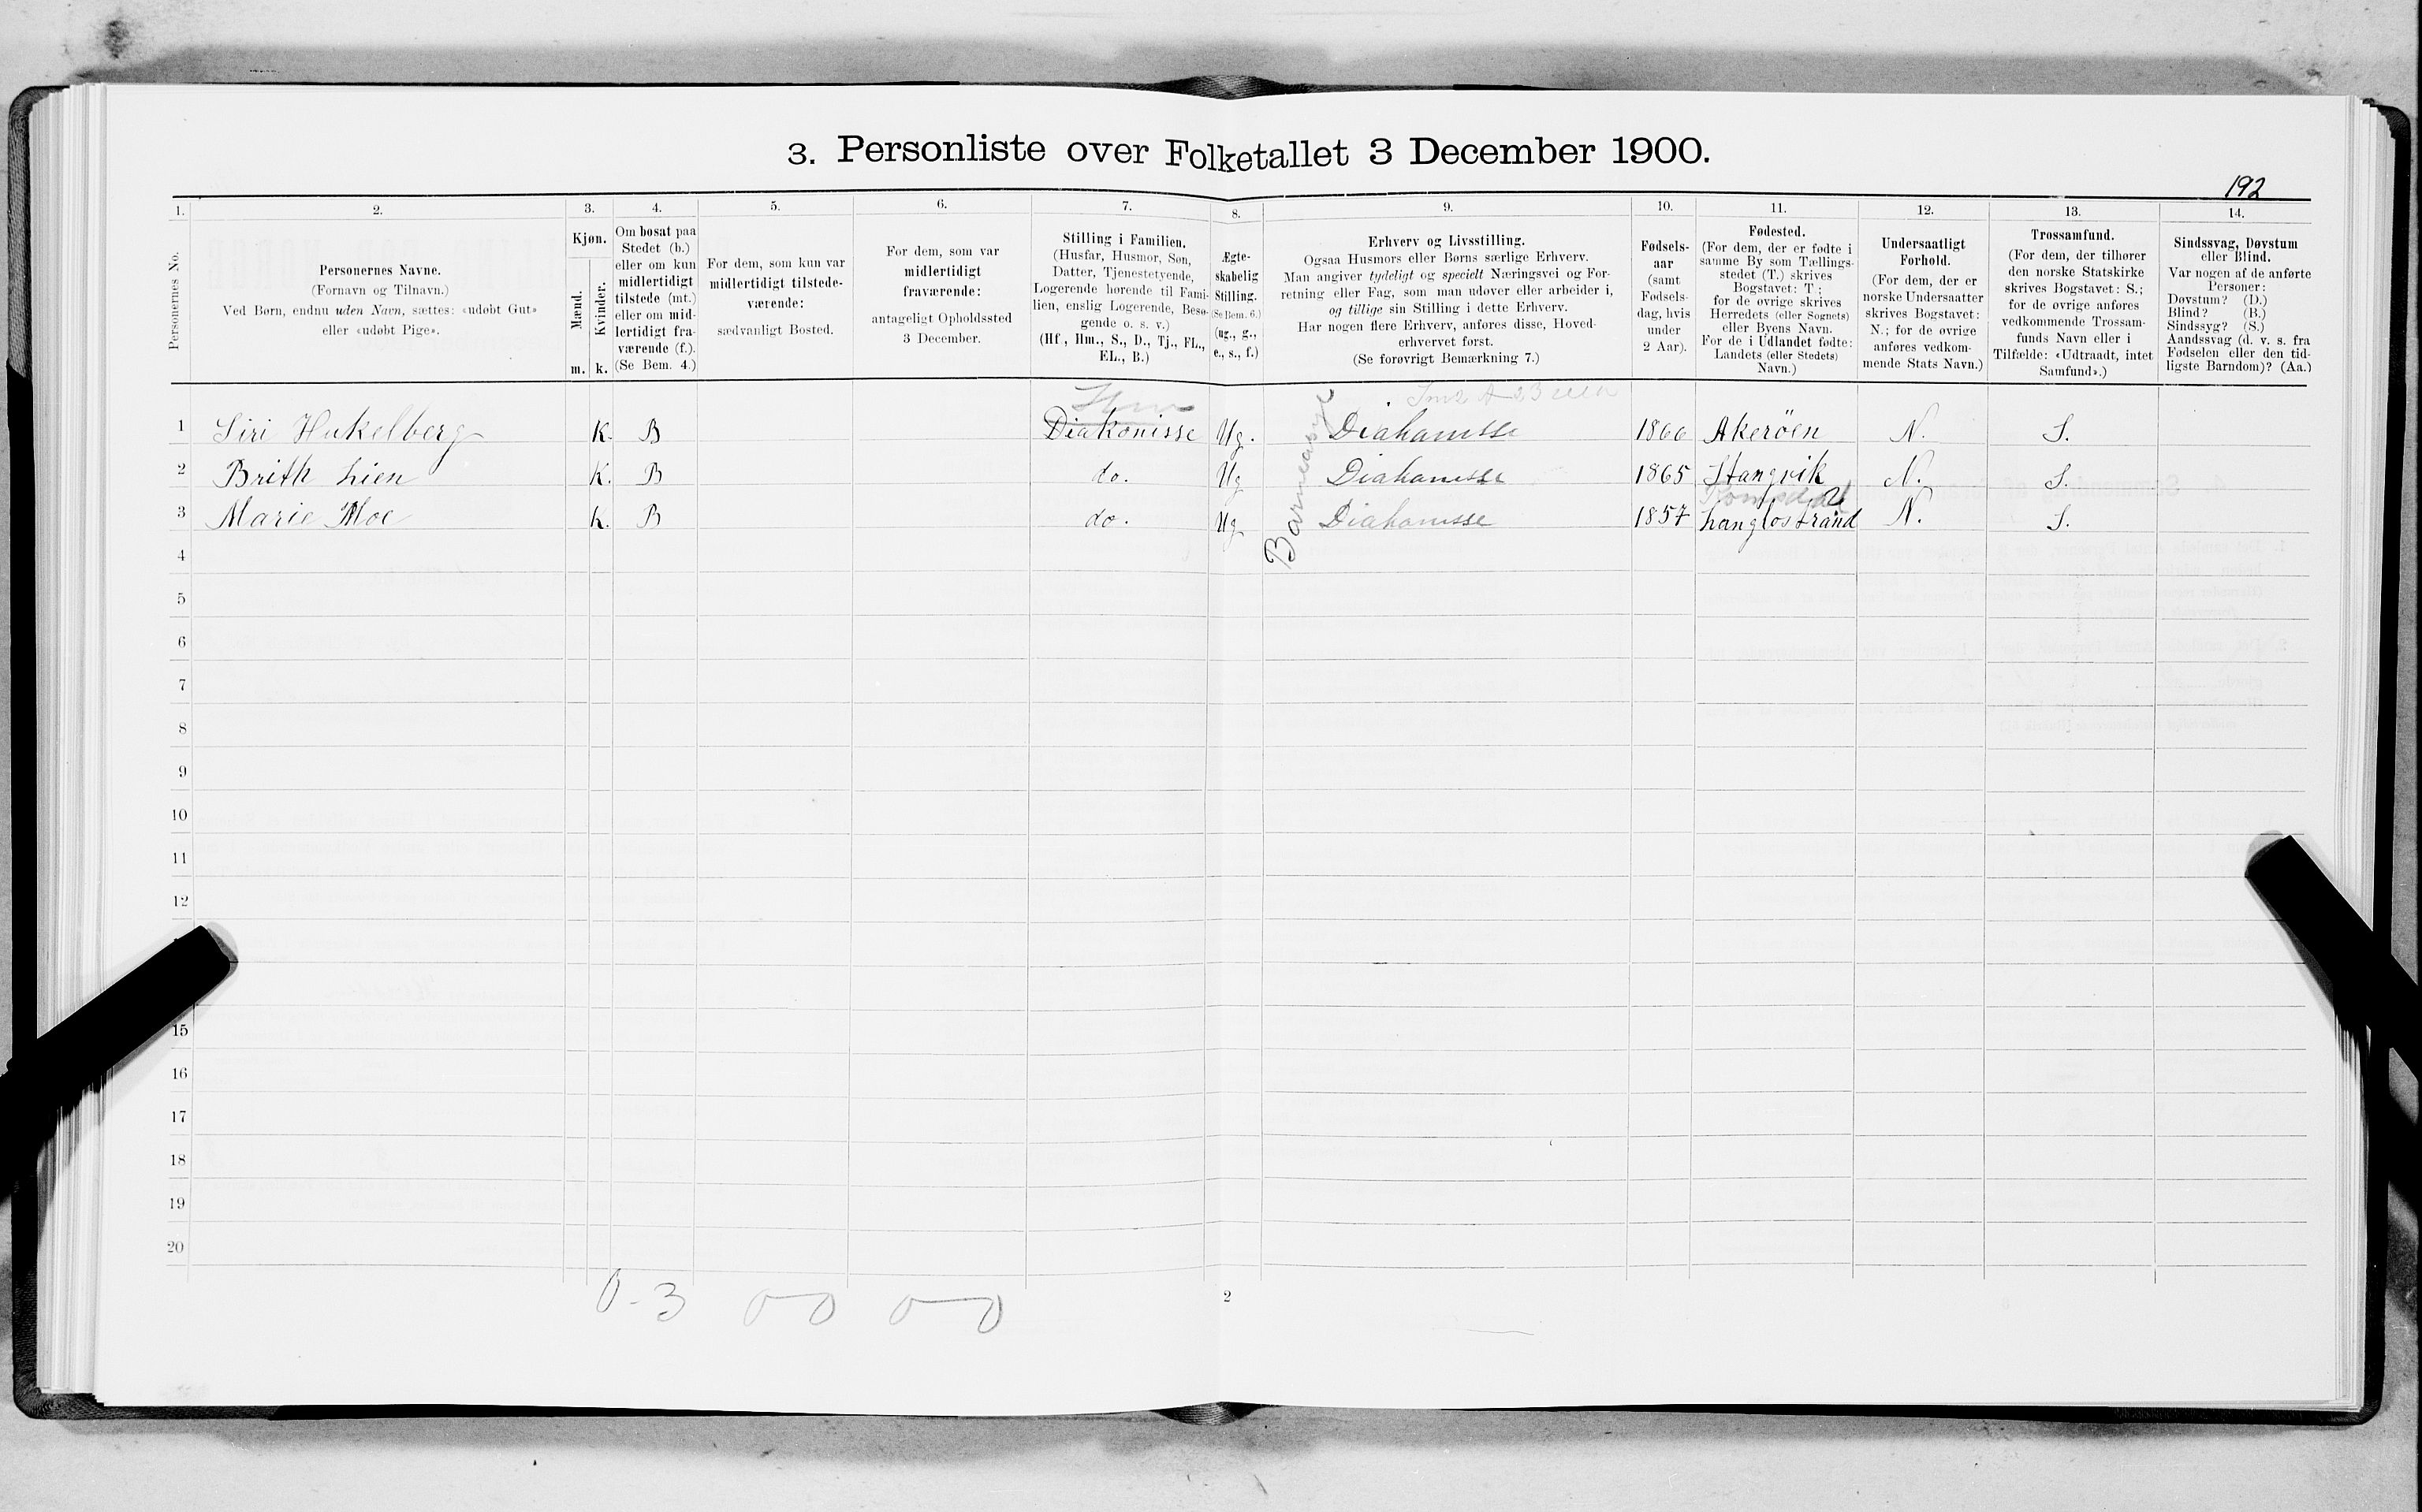 3. Personliste over Folketallet 3 December 1900.
192
1. 2. 3. 4. 5. 6. 7. 8. 9. 10. 11. 12. 13. 14.
Personernes No.
Personernes Navne.
(Fornavn og Tilnavn.)
Ved Børn, endnu uden Navn, sættes: «udøbt Gut»
eller «udøbt Pige».
Kjøn.
Mænd.
Kvinder.
m. k.
Om bosat paa
Stedet (b.)
eller om kun
midlertidigt
tilstede (mt.)
eller om mid-
lertidigt fra-
værende (f.).
(Se Bem. 4.)
For dem, som kun var
midlertidigt tilstede-
værende:
sædvanligt Bosted.
For dem, som var
midlertidigt
fraværende:
antageligt Opholdssted
3 December.
Stilling i Familien.
(Husfar, Husmor, Søn,
Datter, Tjenestetyende,
Logerende hørende til Fami-
lien, enslig Logerende, Besø-
gende o. s. v.)
(Hf, Hm., S., D., Tj., FL.,
EL., B.)
Ægte-
skabelig
Stilling.
(Se Bem. 6.)
(ug., g.,
e., s., f.)
Erhverv og Livsstilling.
Ogsaa Husmors eller Børns særlige Erhverv.
Man angiver tydeligt og specielt Næringsvei og For-
retning eller Fag, som man udøver eller arbeider i,
og tillige sin Stilling i dette Erhverv.
Har nogen flere Erhverv, anføres disse, Hoved-
erhvervet først.
(Se forøvrigt Bemærkning 7.)
Fødsels-
aar
(samt
Fødsels-
dag, hvis
under
2 Aar).
Fødested.
(For dem, der er fødte i
samme By som Tællings-
stedet (T.) skrives
Bogstavet: T;
for de øvrige skrives
Herredets (eller Sognets)
eller Byens Navn.
For de i Udlandet fødte:
Landets (eller Stedets)
Navn.)
Undersaatligt
Forhold.
(For dem, der er
norske Undersaatter
skrives Bogstavet:
N.; for de øvrige
anføres vedkom-
mende Stats Navn.)
Trossamfund.
(For dem, der tilhører
den norske Statskirke
skrives Bogstavet: S.;
for de øvrige anføres
vedkommende Trossam-
funds Navn eller i
Tilfælde: «Udtraadt, intet
Samfund».)
Sindssvag, Døvstum
eller Blind.
Var nogen af de anførte
Personer:
Døvstum? (D.)
Blind? (B.)
Sindssyg? (S.)
Aandssvag (d. v. s. fra
Fødselen eller den tid-
ligste Barndom)? (Aa.)
1 Siri Hukelberg K. B Diakonisse Ug. Diakonisse 1866 Akerøen N. S.
2 Brith Lien K. B do. Ug Diakonisse 1865 Stangvik N. S.
Romsdal
3 Marie Moe K. B do. Ug Diakonisse 1857 Langlostrand N. S.
4
5
6
7
8
9
10
11
12
15
16
17
18
19
20
0-3 0-0 0-0
2